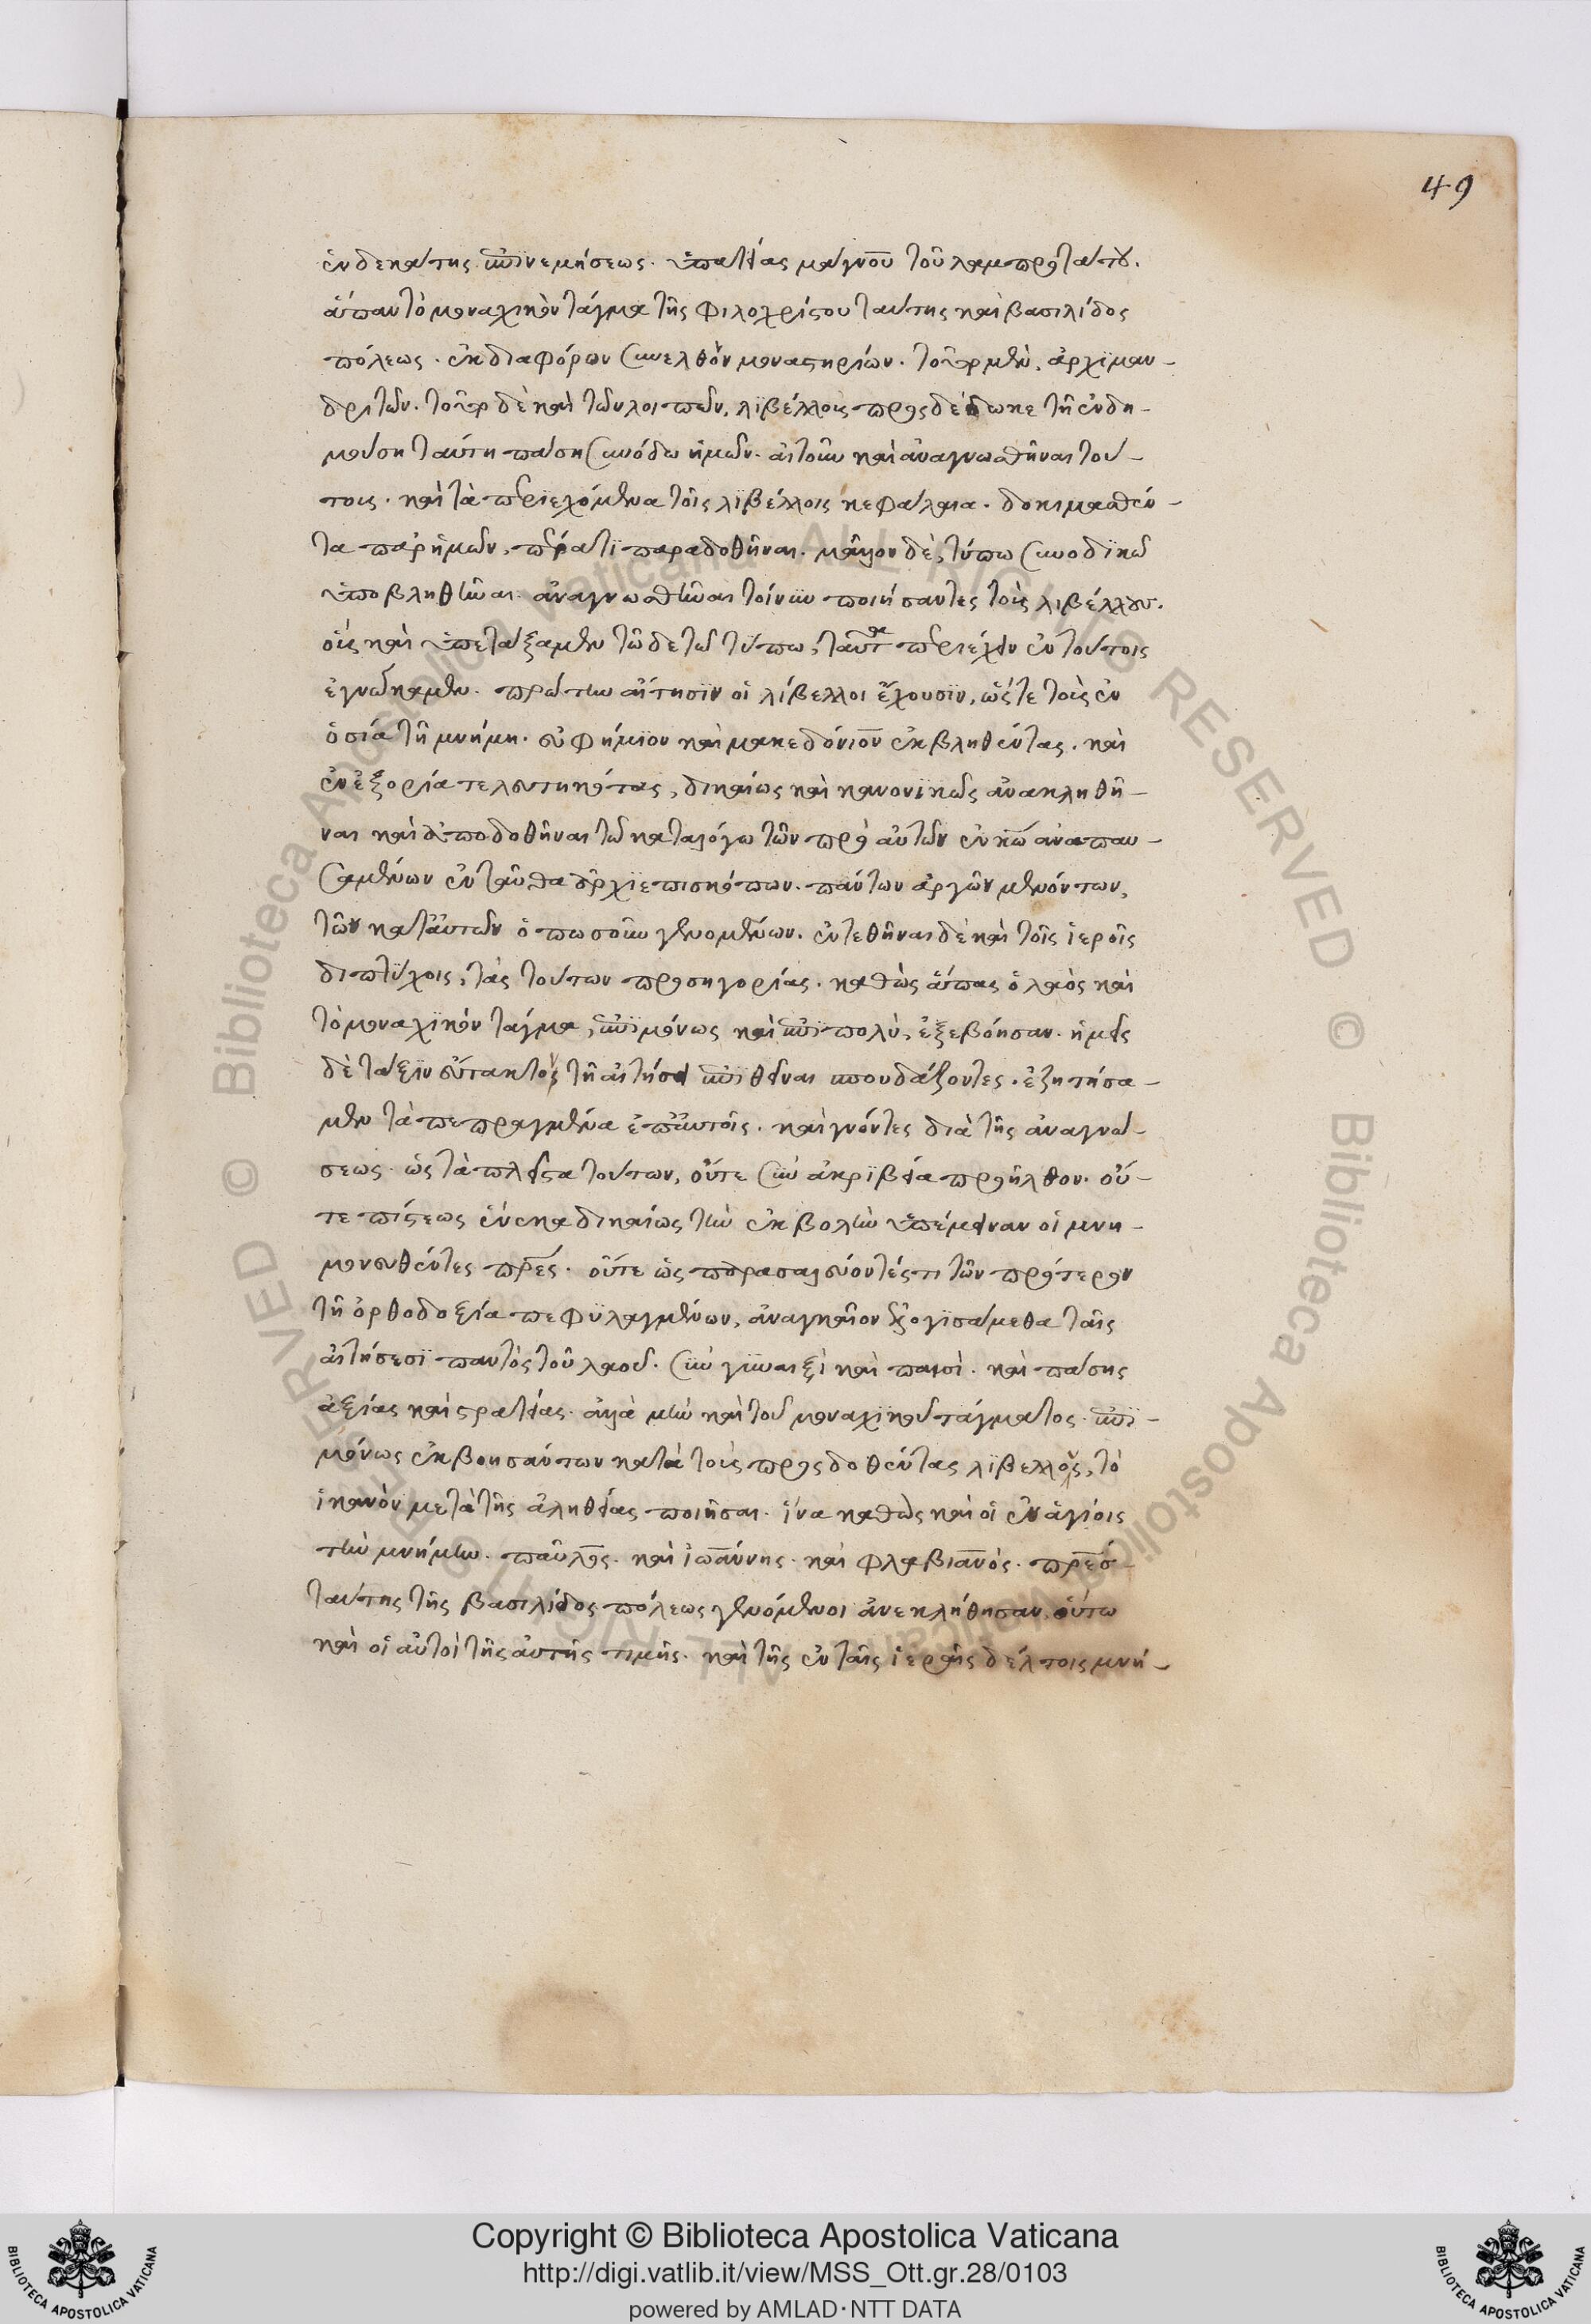 49
ἑνδεκάτης ἐπινεμήσεως. ὑπατείας μάγνου τοῦ λαμπροτάτου.
ἅπαν τὸ μοναχικὸν τάγμα τῆς φιλοχρίστου ταύτης καὶ βασιλίδος
πόλεως. ἐκ διαφόρων συνελθὸν μοναστηρίων. τοῦτο μὲν, ἀρχιμαν-
δριτῶν. τοῦτο δὲ καὶ τῶν λοιπῶν, λιβέλλους προσδέδωκε τῇ ἐνδη-
μούσῃ ταύτῃ πάσῃ συνόδω ἡμῶν. αἰτοῦν καὶ ἀναγνωσθῆναι τού-
τους. καὶ τὰ περιεχόμενα τοῖς λιβέλλοις κεφάλαια. δοκιμασθέν-
τα παρ' ἡμῶν, πέρατι παραδοθῆναι. μᾶλλον δὲ, τύπω συνοδικῶ
ὑποβληθῆναι. ἀναγνωσθῆναι τοίνυν ποιήσαντες τοὺς λιβέλλους.
οὓς καὶ ὑπετάξαμεν τῶδε τῶ τύπω, ταῦτα περιέχειν ἐν τούτοις
ἐγνώκαμεν. πρώτην αἴτησιν οἱ λίβελλοι ἔχουσιν, ὥστε τοὺς ἐν
ὁσία τῇ μνήμη. εὐφήμιον καὶ μακεδόνιον ἐκβληθέντας. καὶ
ἐν ἐξορία τελευτηκότας, δικαίως καὶ κανονικῶς ἀνακληθῆ-
ναι καὶ ἀποδοθῆναι τῶ καταλόγω τῶν πρὸ αὐτῶν ἐν κῶ ἀναπαυ-
σαμένων ἐνταῦθα ἀρχιεπισκόπων. πάντων ἀργῶν μενόντων,
τῶν κατ' αὐτῶν ὁπωσοῦν γενομένων. ἐντεθῆναι δὲ καὶ τοῖς ἱεροῖς
διπτύχοις, τὰς τούτων προσηγορίας. καθὼς ἅπας ὁ λαὸς καὶ
τὸ μοναχικὸν τάγμα, ἐπιμόνως καὶ ἐπιπολὺ, ἐξεβόησαν. ἡμεῖς
δὲ τάξιν εὔτακτον τῇ αἰτήσει ἐπιθεῖναι σπουδάζοντες. ἐζητήσα-
μεν τὰ πεπραγμένα ἐπ' αὐτοῖς. καὶ γνόντες διὰ τῆς ἀναγνώ-
σεως. ὡς τὰ πλεῖστα τούτων, οὔτε σὺν ἀκριβεία προῆλθον. οὔ-
τε πίστεως ἕνεκα δικαίως τὴν ἐκβολὴν ὑπέμειναν οἱ μνη-
μονευθέντες πρες. οὔτε ὡς παρασαλεύοντές τι τῶν πρότερον
τῇ ὀρθοδοξία πεφυλαγμένων, ἀναγκαῖον ἐλογισάμεθα ταῖς
αἰτήσεσι παντὸς τοῦ λαοῦ. σὺν γυναιξὶ καὶ παισὶ. καὶ πάσης
ἀξίας καὶ στρατείας. ἀλλὰ μὴν καὶ τοῦ μοναχικοῦ τάγματος. ἐπι-
μόνως ἐκβοησάντων κατὰ τοὺς προσδοθέντας λιβέλλους, τὸ
ἱκανὸν μετὰ τῆς ἀληθείας ποιῆσαι. ἵνα καθὼς καὶ οἱ ἐν ἁγίοις
τὴν μνήμην. παῦλος. καὶ ἰωάννης. καὶ φλαβιανὸς. πρες
ταύτης τῆς βασιλίδος πόλεως γενόμενοι ἀνεκλήθησαν. οὕτω
καὶ οἱ αὐτοὶ τῆς αὐτῆς τιμῆς. καὶ τῆς ἐν ταῖς ἱεραῖς δέλτοις μνή-
© Biblioteca Apostolica Vaticana ALL RIGHTS RESERVED © Biblioteca Apostolica Vaticana ALL RIGHTS RESERVED
Copyright © Biblioteca Apostolica Vaticana
http://digi.vatlib.it/view/MSS_Ott.gr.28/0103
powered by AMLAD · NTT DATA
BIBLIOTECA APOSTOLICA VATICANA
BIBLIOTECA APOSTOLICA VATICANA